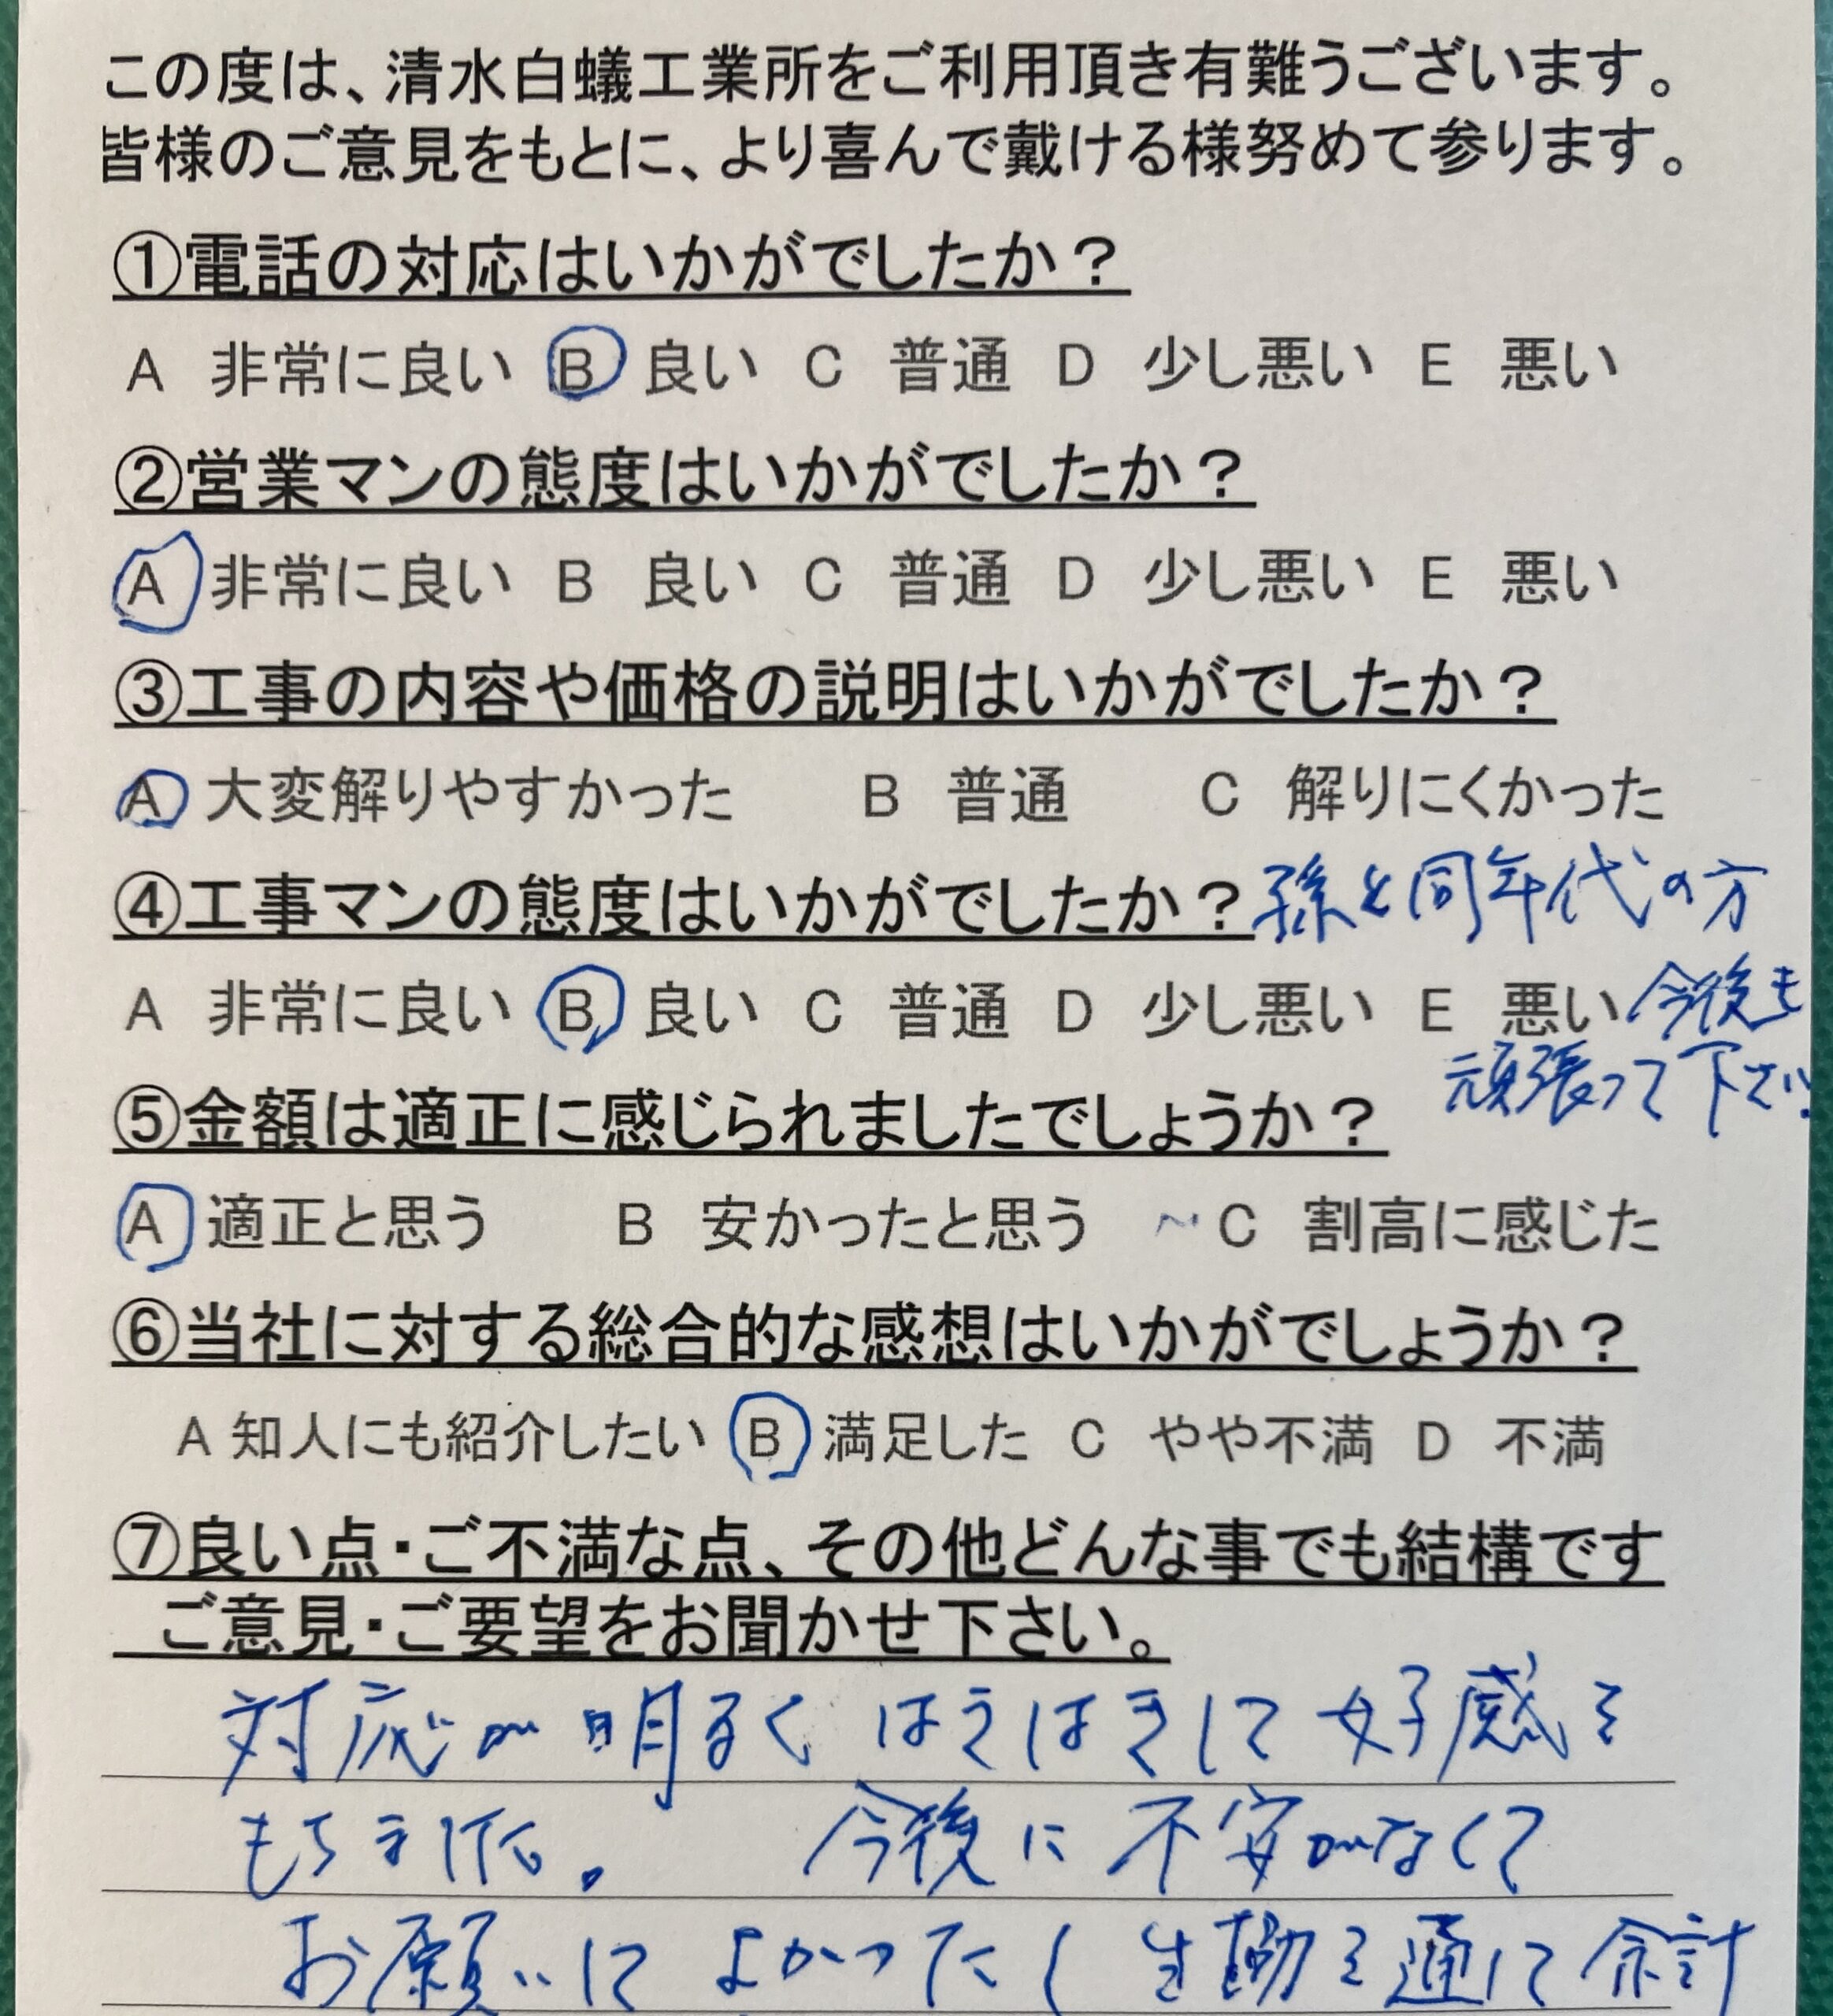 この度は、清水白蟻工業所をご利用頂き有難うございます。
皆様のご意見をもとに、より喜んで戴ける様努めて参ります。
①電話の対応はいかがでしたか？
A 非常に良い B 良い C 普通 D 少し悪い E 悪い
②営業マンの態度はいかがでしたか？
A 非常に良い B 良い C 普通 D 少し悪い E 悪い
③工事の内容や価格の説明はいかがでしたか？
A 大変解りやすかった B 普通 C 解りにくかった
④工事マンの態度はいかがでしたか？孫と同年代の方
A 非常に良い B 良い C 普通 D 少し悪い E 悪い 今後も
頑張って下さい
⑤金額は適正に感じられましたでしょうか？
A 適正と思う B 安かったと思う C 割高に感じた
⑥当社に対する総合的な感想はいかがでしょうか？
A 知人にも紹介したい B 満足した C やや不満 D 不満
⑦良い点・ご不満な点、その他どんな事でも結構です
ご意見・ご要望をお聞かせ下さい。
対応が明るく はきはきして好感を
もちました。 今後に不安がなくて
お願いして よかったし を通して余計